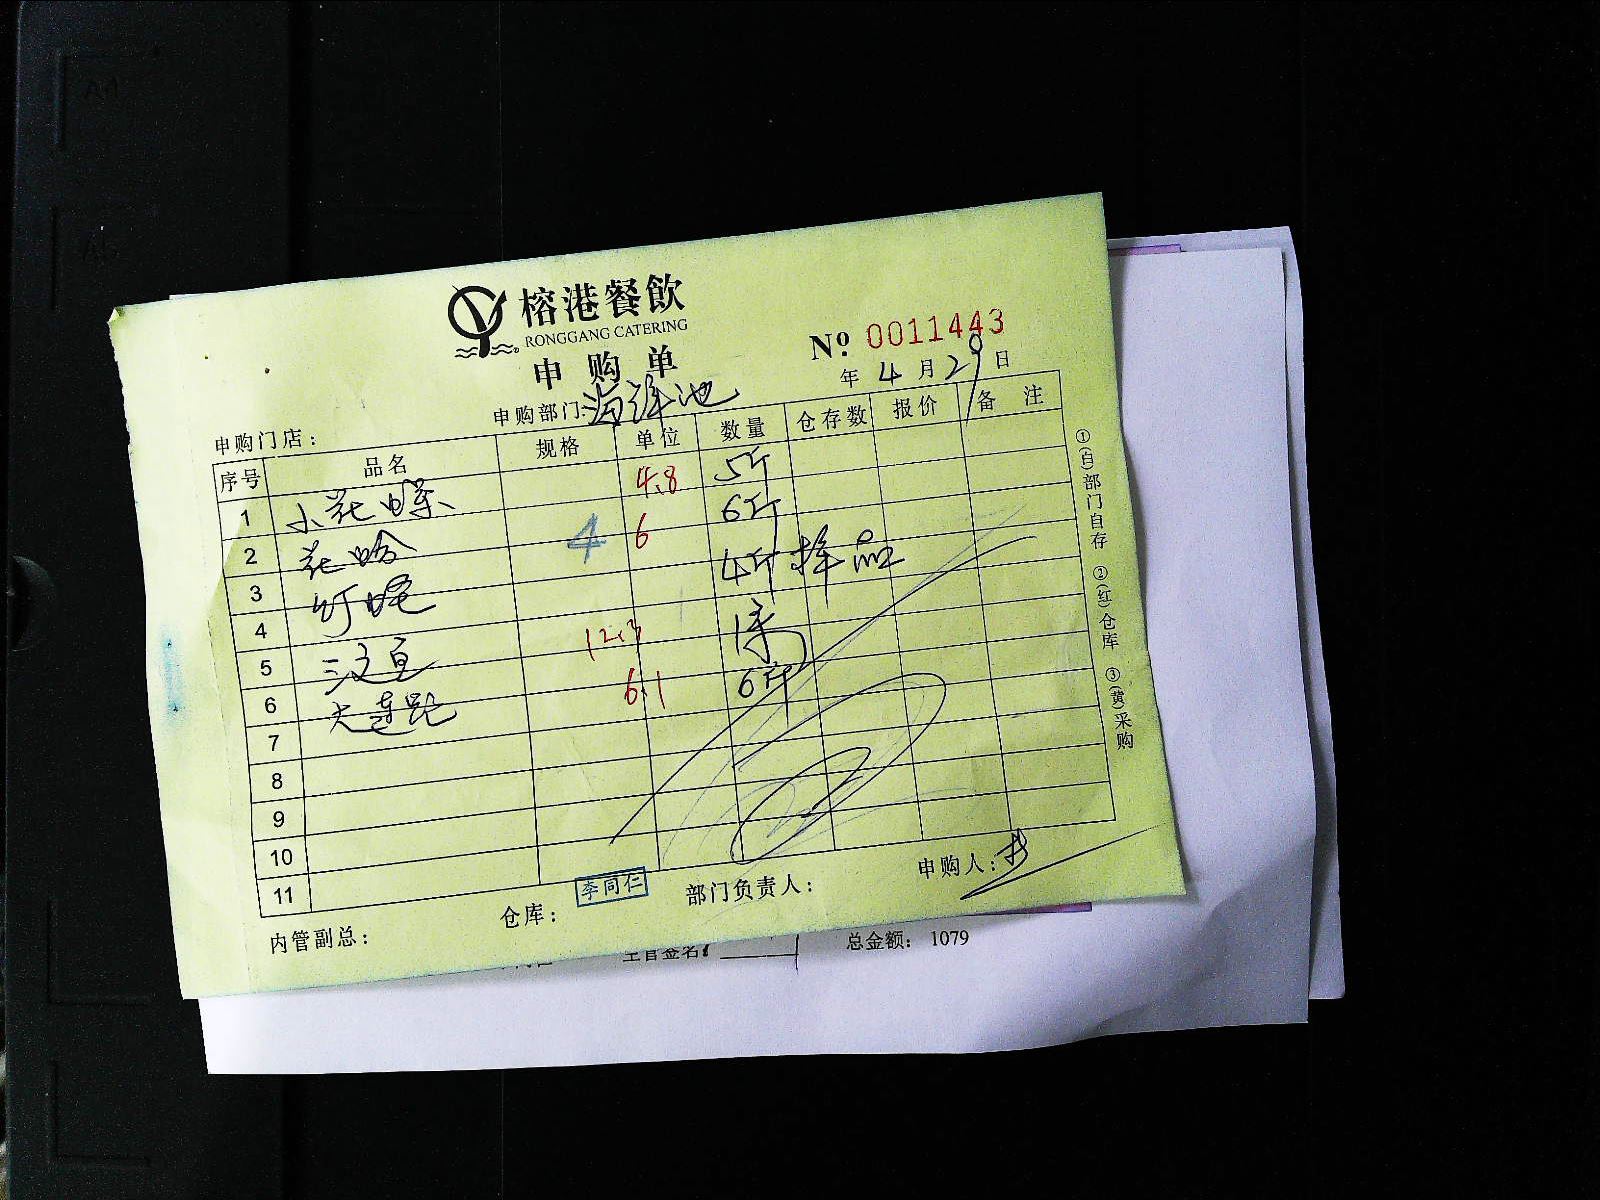 榕港餐飲
RONGGANG CATERING
申购单
№ 0011443
年 4 月 29 日
申购门店：
申购部门：海鲜池
序号 品名 规格 单位 数量 仓存数 报价 备注
1 小花螺 4.8 5斤
2 花蛤 4 6 6斤
3 4斤 择品
4
5 三文 12.3 1条
6 大连鲍 6.1 6斤
7
8
9
10
11
①(白)部门自存 ②(红)仓库 ③(黄)采购
内管副总：
仓库：
李同仁
部门负责人：
申购人：
主管签名：
总金额： 1079